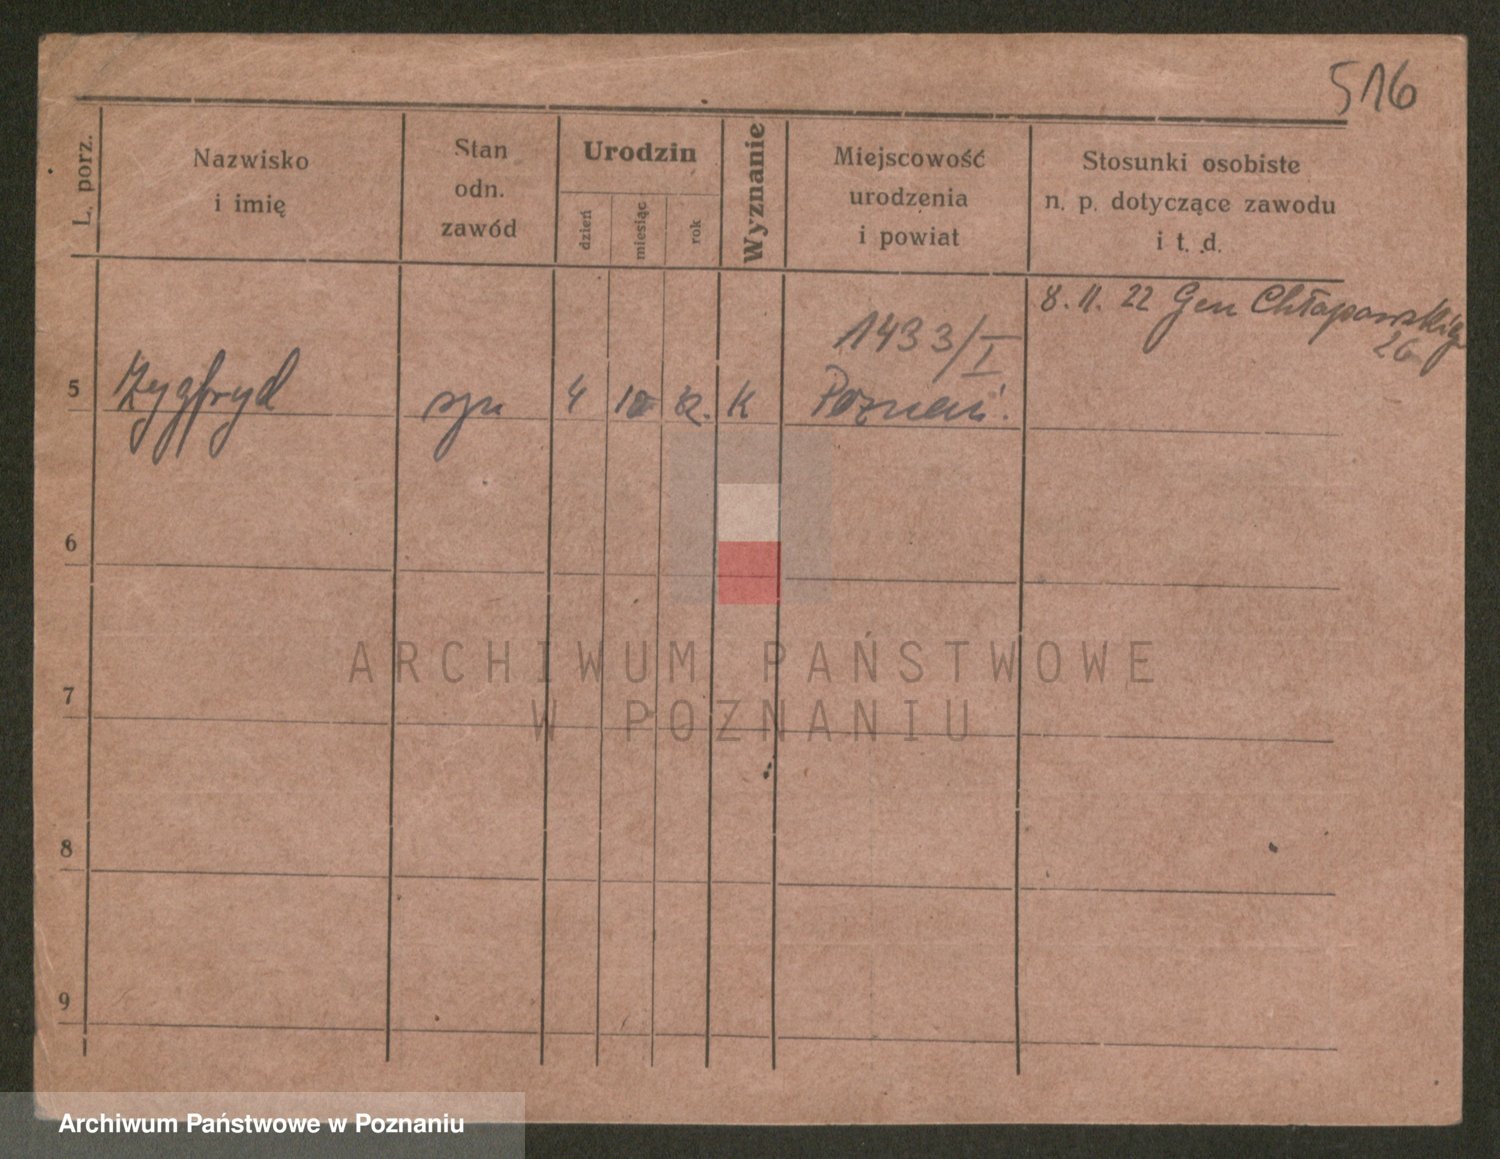 516
L. porz.
Nazwisko
i imię
Stan
odn.
zawód
Urodzin
dzień
miesiąc
rok
Wyznanie
Miejscowość
urodzenia
i powiat
Stosunki osobiste
n. p. dotyczące zawodu
i t. d.
8. 11. 22 Gen Chłapowskiego
26
1433/I
5 Zygfryd syn 4 10 22. K Poznań.
6
ARCHIWUM PAŃSTWOWE
W POZNANIU
7
8
9
Archiwum Państwowe w Poznaniu